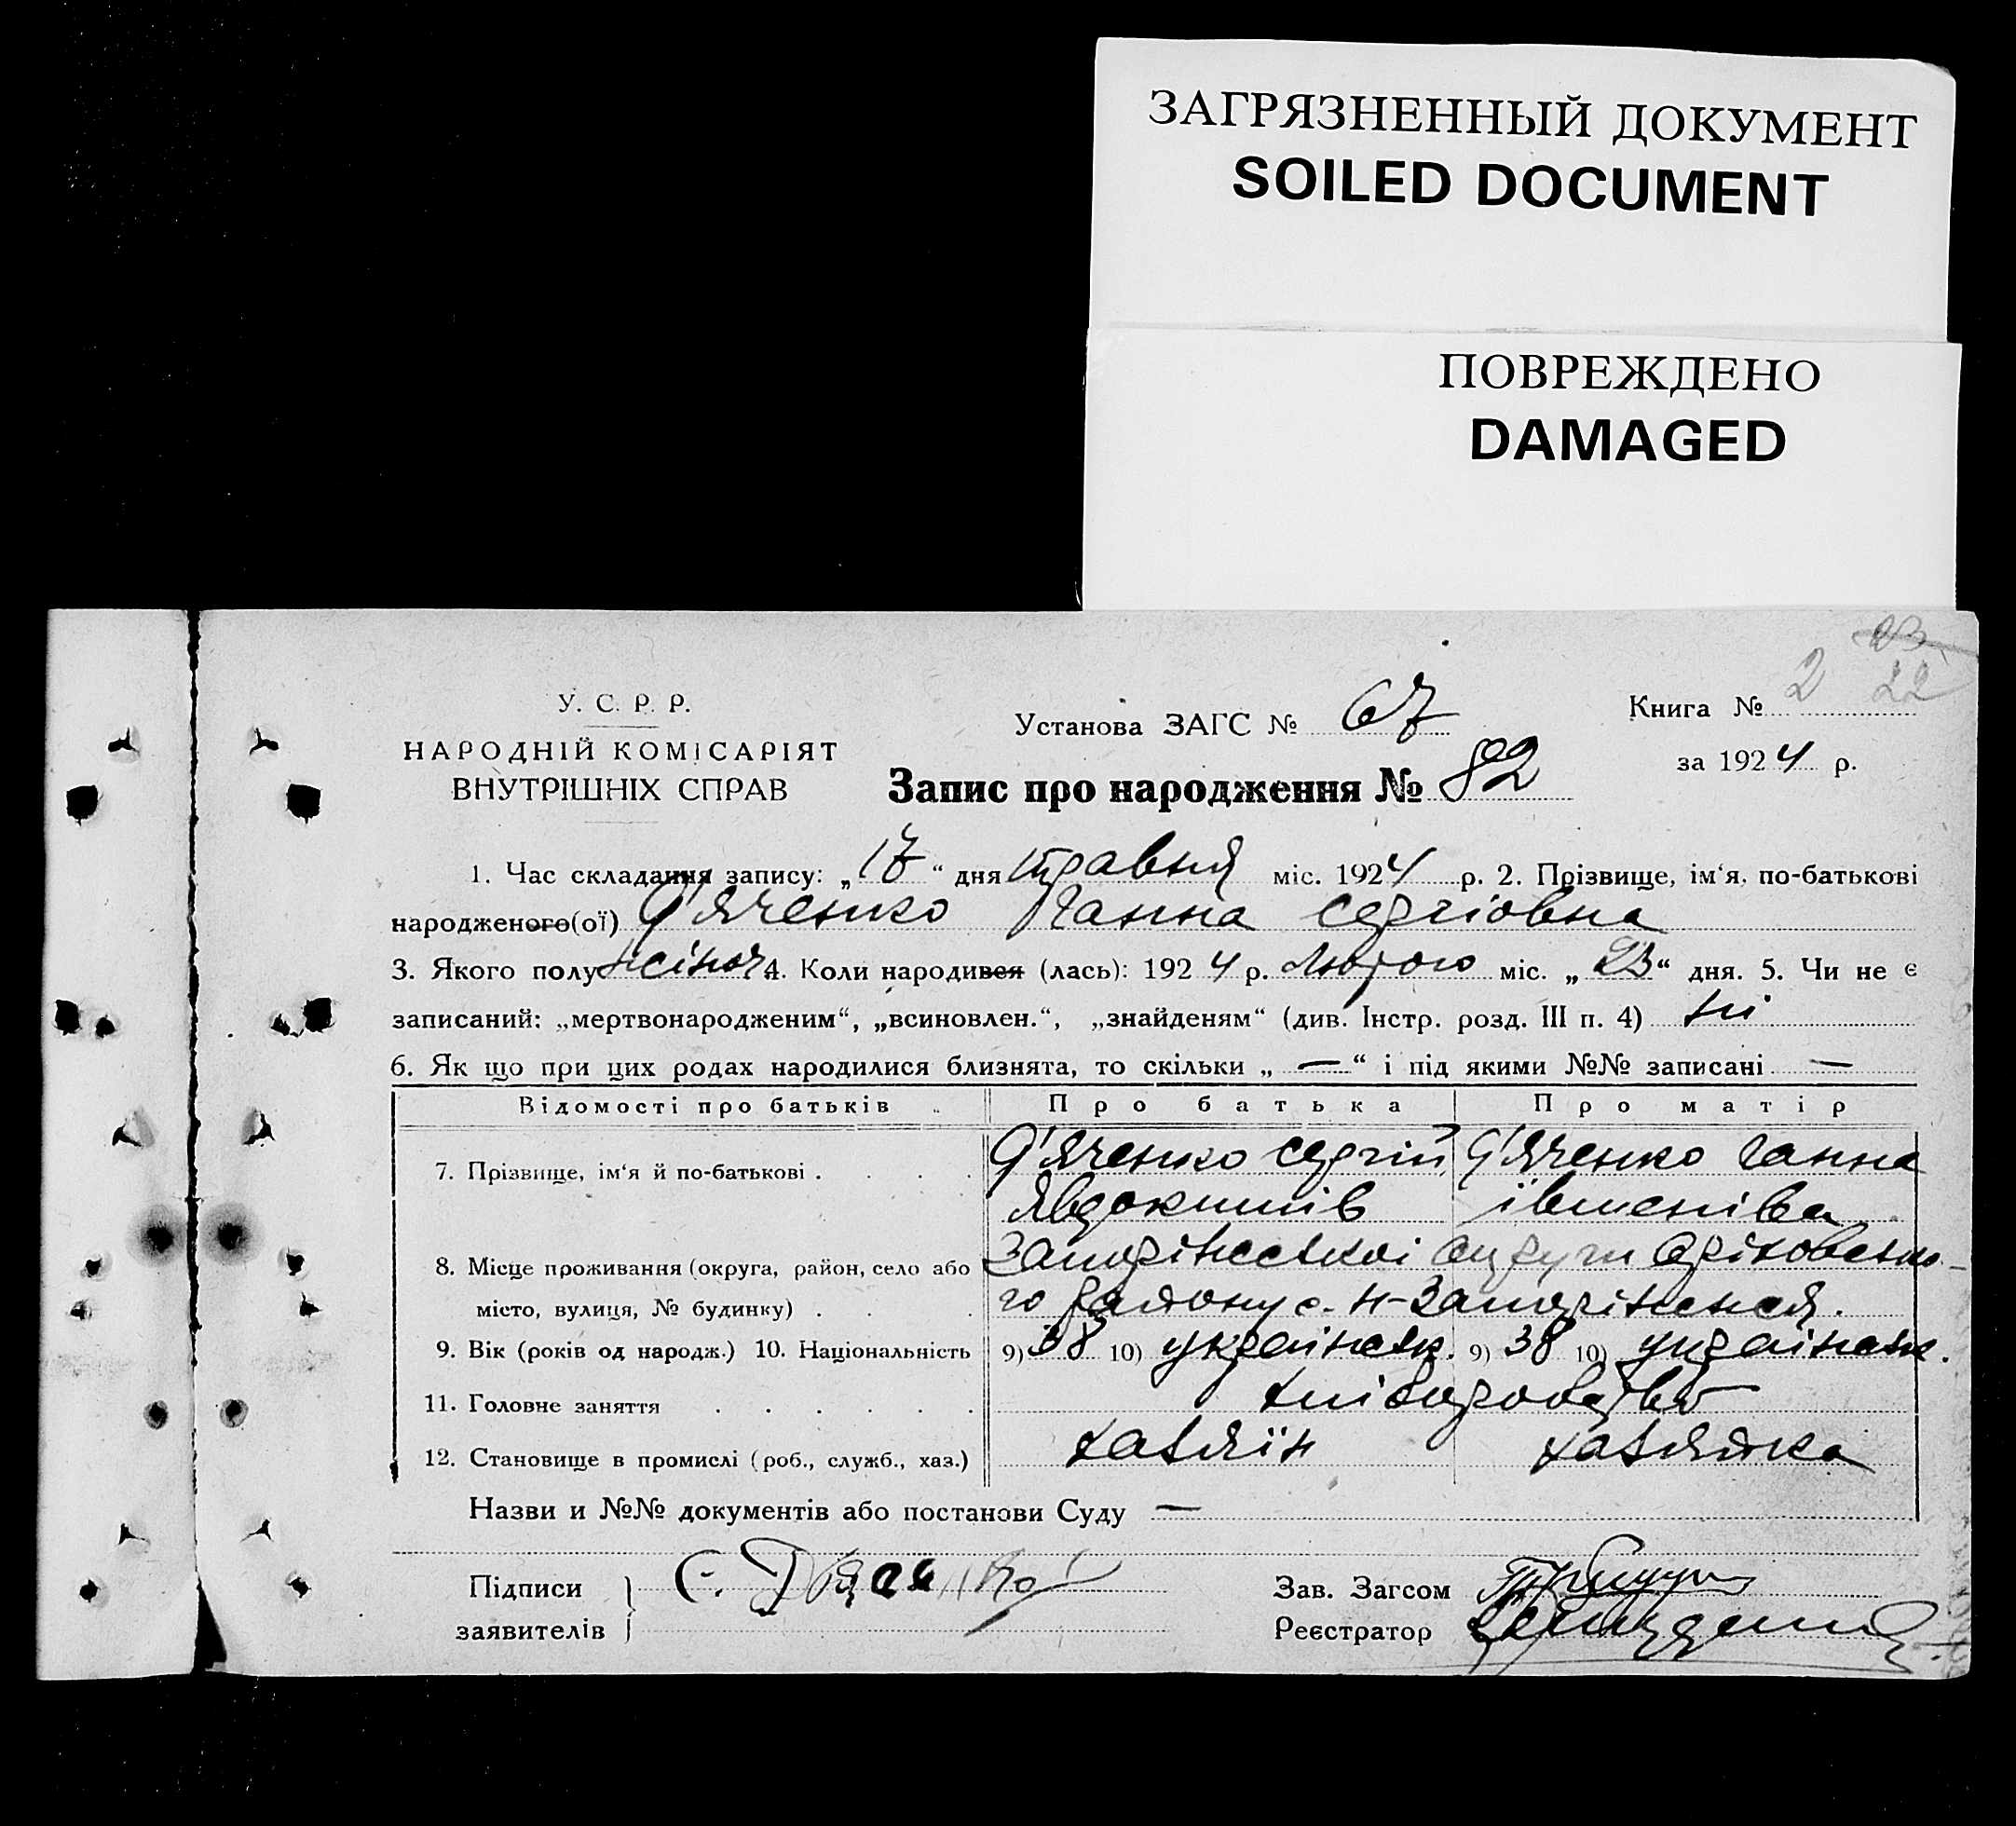 ЗАГРЯЗНЕННЫЙ ДОКУМЕНТ
SOILED DOCUMENT
ПОВРЕЖДЕНО
DAMAGED
23
2 22
У. С. Р. Р.
НАРОДНІЙ КОМІСАРІЯТ
ВНУТРІШНІХ СПРАВ
Установа ЗАГС № 67
Книга №
за 1924 р.
Запис про народження № 82
1. Час складання запису: „17“ дня травня міс. 1924 р. 2. Прізвище, ім‘я, по-батькові
народженого(ої) Д'яченко Ганна Сергіовна
3. Якого полу жіноч 4. Коли народився (лась): 1924 р. Лютого міс. „23“ дня. 5. Чи не є
записаний: „мертвонародженим“, „всиновлен.“, „знайденям“ (див. Інстр. розд. III п. 4) ні
6. Як що при цих родах народилися близнята, то скільки „—“ і під якими №№ записані —
Відомості про батьків Про батька Про матір
7. Прізвище, ім‘я й по-батькові . . . . Д'яченко Сергій Д'яченко Ганна
Явдокимів Івменівна
8. Місце проживання (округа, район, село або Запоріжської округи Оріховсько-
місто, вулиця, № будинку) . . го району с. Н-Запоріжжя.
9. Вік (років од народж.) 10. Національність 9) 38 10) українськ. 9) 38 10) українськ.
11. Головне заняття . . . . . . хліборобство
12. Становище в промислі (роб., служб., хаз.) хазяїн хазяйка
Назви и №№ документів або постанови Суду —
Підписи
заявителів
С. Дяченко
Зав. Загсом
Реєстратор